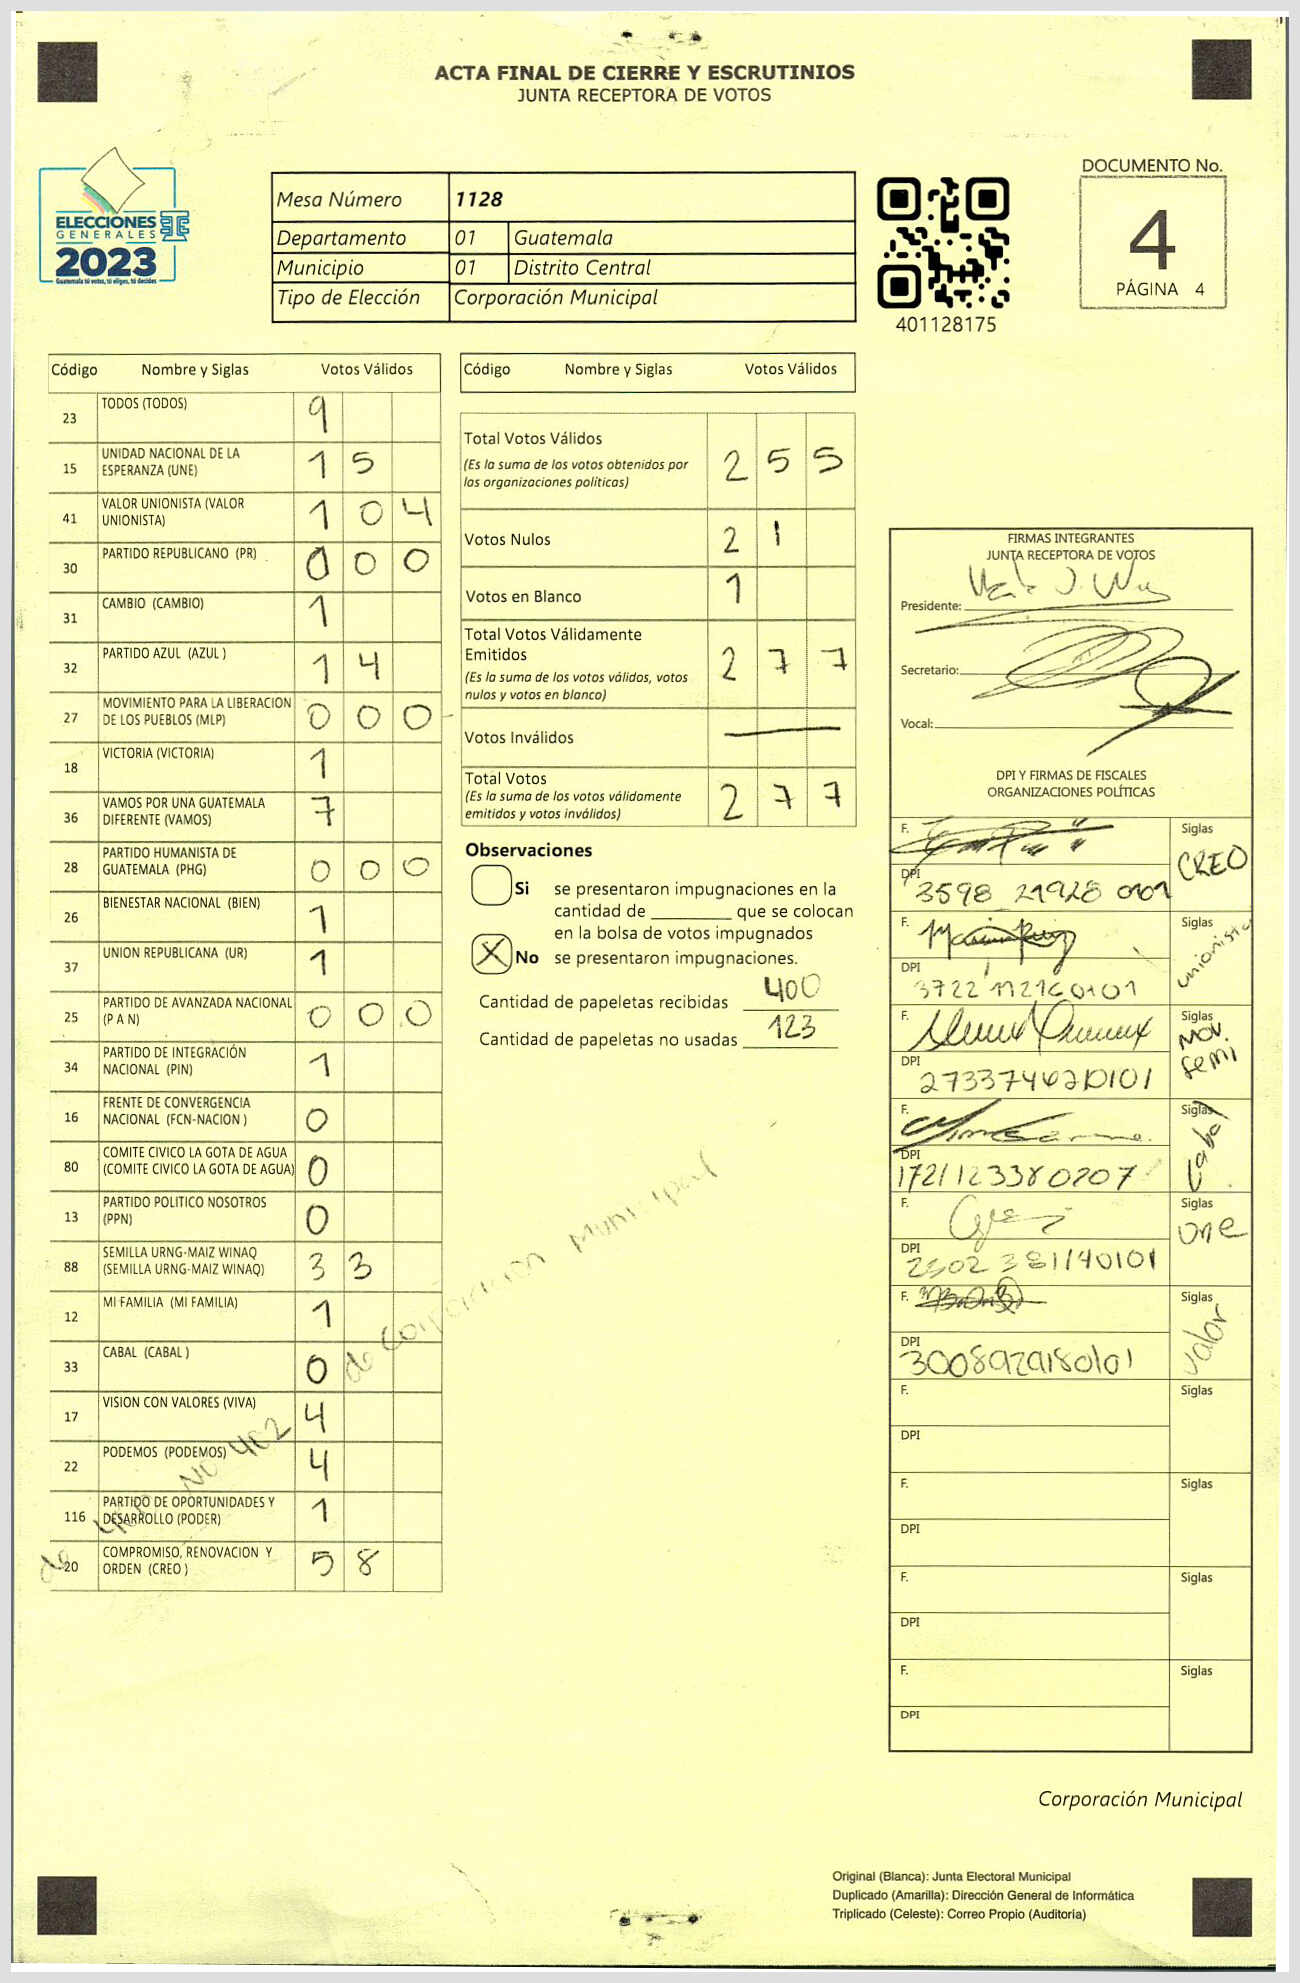 ACTA FINAL DE CIERRE Y ESCRUTINIOS
JUNTA RECEPTORA DE VOTOS
ELECCIONES
GENERALES
2023
Guatemala tú votas, tú eliges, tú decides
Mesa Número 1128
Departamento 01 Guatemala
Municipio 01 Distrito Central
Tipo de Elección Corporación Municipal
401128175
DOCUMENTO No.
4
PÁGINA 4
Código Nombre y Siglas Votos Válidos
23 TODOS (TODOS) 9
15 UNIDAD NACIONAL DE LA ESPERANZA (UNE) 1 5
41 VALOR UNIONISTA (VALOR UNIONISTA) 1 0 4
30 PARTIDO REPUBLICANO (PR) 0 0 0
31 CAMBIO (CAMBIO) 1
32 PARTIDO AZUL (AZUL ) 1 4
27 MOVIMIENTO PARA LA LIBERACION DE LOS PUEBLOS (MLP) 0 0 0
18 VICTORIA (VICTORIA) 1
36 VAMOS POR UNA GUATEMALA DIFERENTE (VAMOS) 7
28 PARTIDO HUMANISTA DE GUATEMALA (PHG) 0 0 0
26 BIENESTAR NACIONAL (BIEN) 1
37 UNION REPUBLICANA (UR) 1
25 PARTIDO DE AVANZADA NACIONAL (P A N) 0 0 0
34 PARTIDO DE INTEGRACIÓN NACIONAL (PIN) 1
16 FRENTE DE CONVERGENCIA NACIONAL (FCN-NACION ) 0
80 COMITE CIVICO LA GOTA DE AGUA (COMITE CIVICO LA GOTA DE AGUA) 0
13 PARTIDO POLITICO NOSOTROS (PPN) 0
88 SEMILLA URNG-MAIZ WINAQ (SEMILLA URNG-MAIZ WINAQ) 3 3
12 MI FAMILIA (MI FAMILIA) 1
33 CABAL (CABAL ) 0
17 VISION CON VALORES (VIVA) 4
22 PODEMOS (PODEMOS) 4
116 PARTIDO DE OPORTUNIDADES Y DESARROLLO (PODER) 1
20 COMPROMISO, RENOVACION Y ORDEN (CREO ) 5 8
de 400 NO 402
de Corporacion Municipal
Código Nombre y Siglas Votos Válidos
Total Votos Válidos 2 5 5
(Es la suma de los votos obtenidos por
las organizaciones políticas)
Votos Nulos 2 1
Votos en Blanco 1
Total Votos Válidamente
Emitidos 2 7 7
(Es la suma de los votos válidos, votos
nulos y votos en blanco)
Votos Inválidos
Total Votos 2 7 7
(Es la suma de los votos válidamente
emitidos y votos inválidos)
Observaciones
Si se presentaron impugnaciones en la
cantidad de ________ que se colocan
en la bolsa de votos impugnados
X No se presentaron impugnaciones.
Cantidad de papeletas recibidas 400
Cantidad de papeletas no usadas 123
FIRMAS INTEGRANTES
JUNTA RECEPTORA DE VOTOS
Presidente:
Secretario:
Vocal:
DPI Y FIRMAS DE FISCALES
ORGANIZACIONES POLÍTICAS
F. Siglas CREO
DPI 3598 21928 0101
F. Siglas unionista
DPI 3722 112160101
F. Siglas Mov. Semi
DPI 2733746210101
F. Siglas Cabal
DPI 1721123380207
F. Siglas une
DPI 2302 381140101
F. Siglas valor
DPI 3008929180101
F. Siglas
DPI
F. Siglas
DPI
F. Siglas
DPI
F. Siglas
DPI
Corporación Municipal
Original (Blanca): Junta Electoral Municipal
Duplicado (Amarilla): Dirección General de Informática
Triplicado (Celeste): Correo Propio (Auditoria)